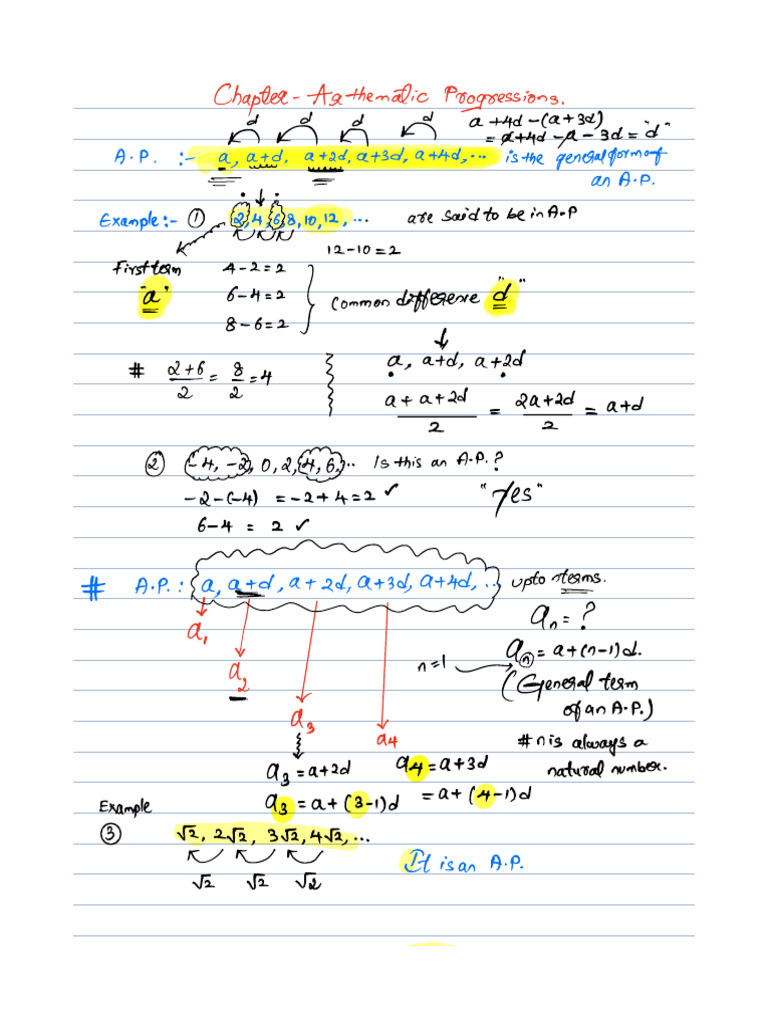 Chapter - Arathematic Progressions.
d d d d
a + 4d - (a + 3d)
= a + 4d - a - 3d = "d"
A.P. :- a, a+d, a+2d, a+3d, a+4d, ... is the general form of
an A.P.
Example :- ① 2, 4, 6, 8, 10, 12, ... are said to be in A.P
12 - 10 = 2
First term
"a"
4 - 2 = 2
6 - 4 = 2
8 - 6 = 2
Common difference "d"
# 2+6/2 = 8/2 = 4
a, a+d, a+2d
a + a + 2d/2 = 2a+2d/2 = a+d
② -4, -2, 0, 2, 4, 6, ... Is this an A.P.?
-2-(-4) = -2+4 = 2 ✓
"Yes"
6-4 = 2 ✓
# A.P. : a, a+d, a+2d, a+3d, a+4d, ... upto n terms.
a₁
a₂
a₃
a₄
aₙ = ?
n=1
aₙ = a+(n-1)d.
(General term
of an A.P.)
# n is always a
natural number.
a₃ = a+2d
a₃ = a+(3-1)d
a₄ = a+3d
= a+(4-1)d
Example
③ √2, 2√2, 3√2, 4√2, ...
√2 √2 √2
It is an A.P.